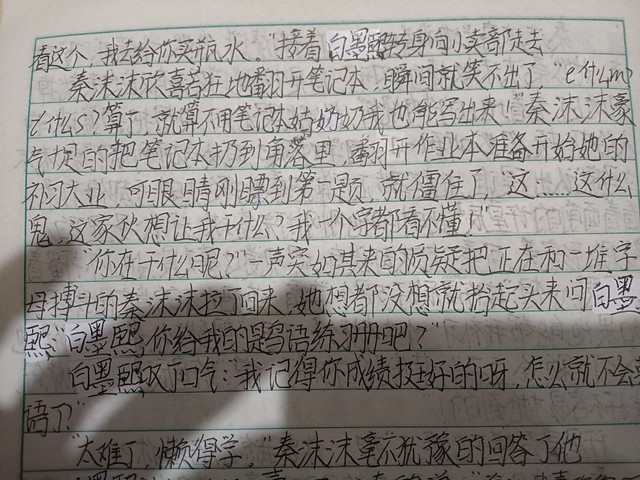 看这个,我去给你买瓶水。"接着白墨熙转身向小卖部走去
秦沫沫欣喜若狂地翻开笔记本,瞬间就笑不出了"e什么mo
t什么s?算了,就算不用笔记本姑奶奶我也能写出来!"秦沫沫豪
气十足的把笔记本扔到角落里,翻开作业本准备开始她的
补习大业,可眼睛刚瞟到第一页,就僵住了,"这……这什么
鬼,这家伙想让我干什么?我一个字都看不懂!"
"你在干什么呢?"一声突如其来的质疑把正在和一堆字
母搏斗的秦沫沫拉了回来,她想都没想就抬起头来问白墨
熙:"白墨熙,你给我的是鸟语练习册吧?"
白墨熙叹了口气:"我记得你成绩挺好的呀,怎么就不会
语了?"
"太难了,懒得学。"秦沫沫毫不犹豫的回答了他